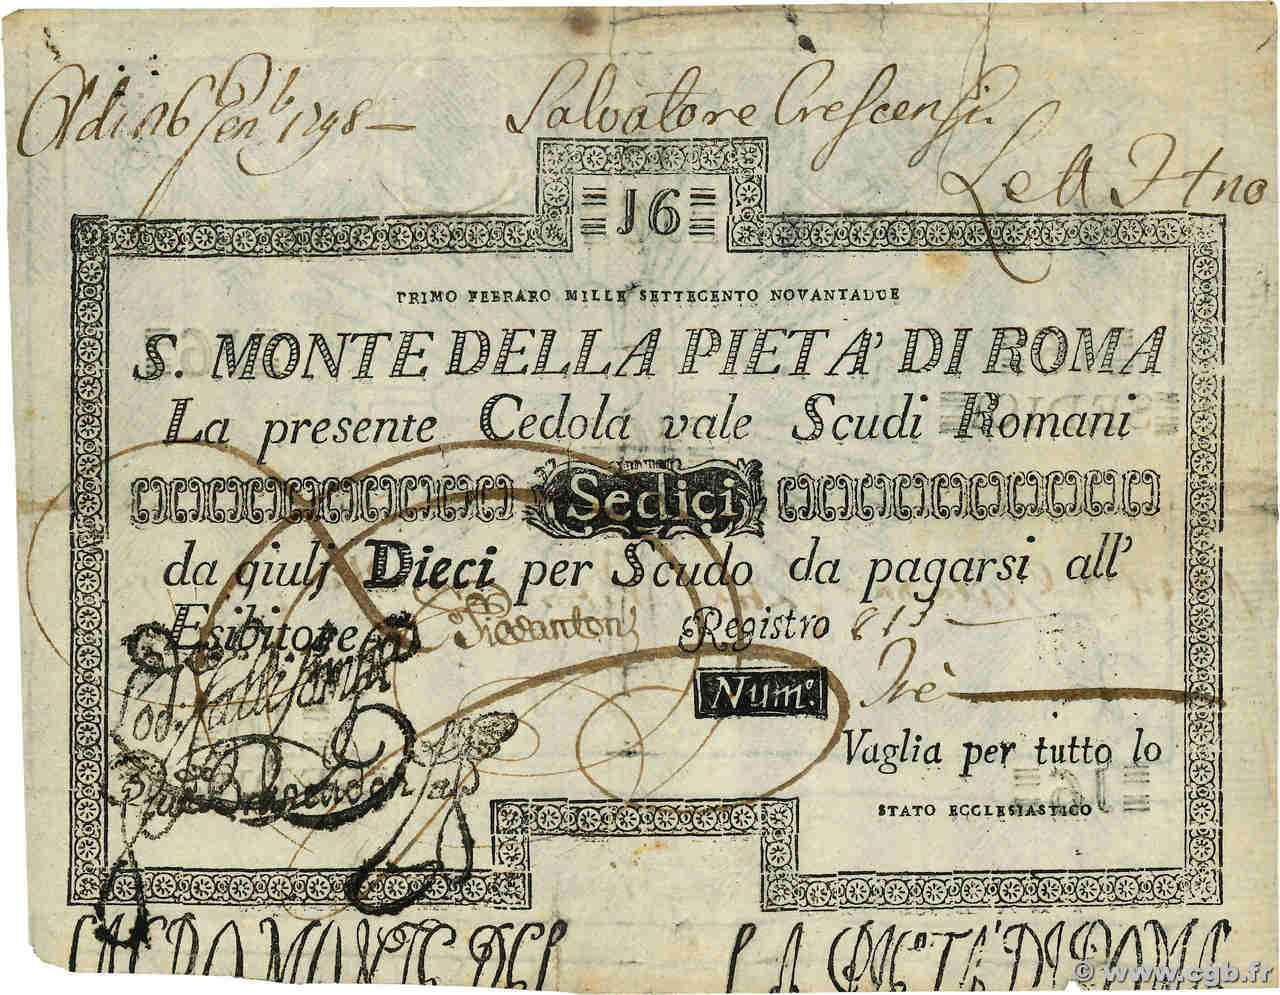 1798 — Salvatore Crescensi
16
PRIMO FEBRARO MILLE SETTECENTO NOVANTADUE
S. MONTE DELLA PIETA' DI ROMA
La presente Cedola vale Scudi Romani
Sedici
da giulj Dieci per Scudo da pagarsi all'
Esibitore Registro
Num.° Trè
Vaglia per tutto lo
STATO ECCLESIASTICO
16
LA PIETA' DI ROMA
© www.cgb.fr